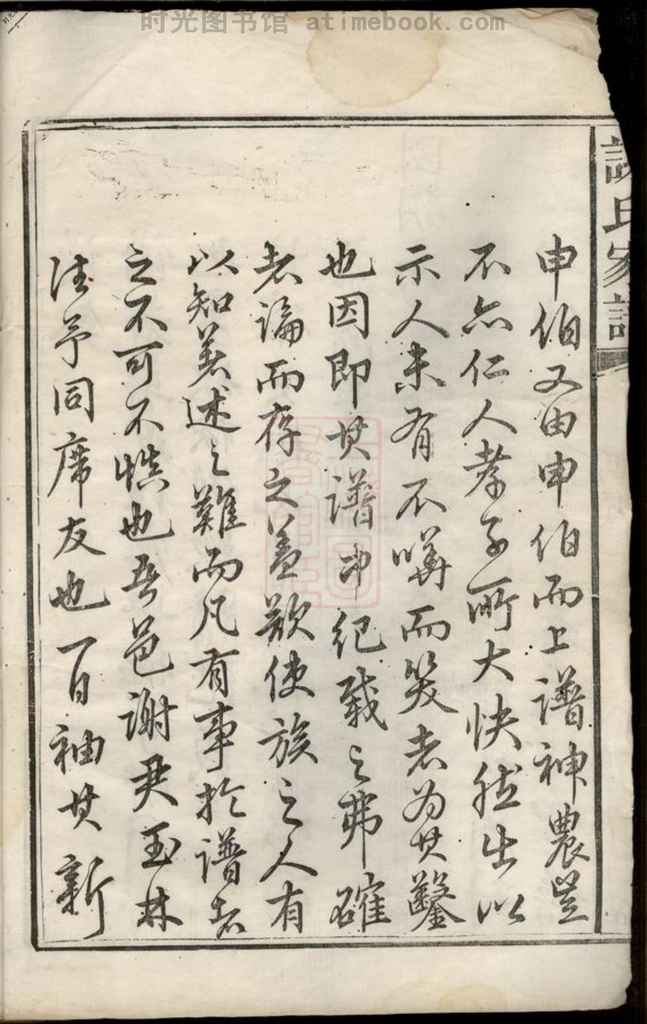 时光图书馆 atimebook.com
謝氏家譜
申伯又由申伯而上譜神農豈
不亦仁人孝子所大快然出以
示人未有不嘩而笑者为其鑿
也因即其譜中紀载之弗確
者論而存之盖欲使族之人有
以知著述之難而凡有事於譜者
之不可不慎也吾邑謝君玉林
往予同席友也一日袖其新